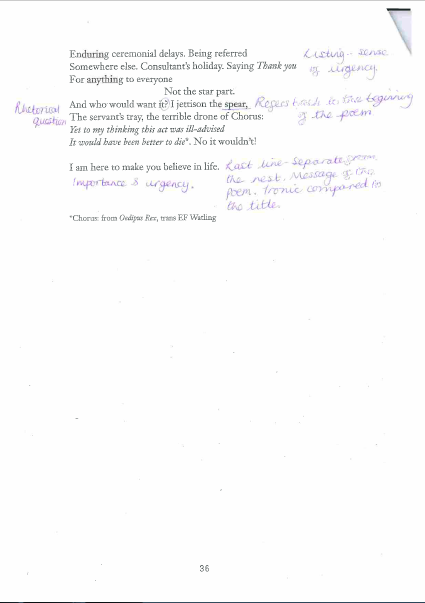 Enduring ceremonial delays. Being referred
Somewhere else. Consultant's holiday. Saying Thank you
For anything to everyone
Not the star part.
And who would want it? I jettison the spear,
The servant's tray, the terrible drone of Chorus:
Yet to my thinking this act was ill-advised
It would have been better to die*. No it wouldn't!
I am here to make you believe in life.
*Chorus: from Oedipus Rex, trans EF Watling
Listing - sense
of urgency.
Rhetorical
question
Refers back to the beginning
of the poem
Last line - Separate from
the rest. Message of the
poem. Ironic compared to
the title.
Importance & urgency.
36